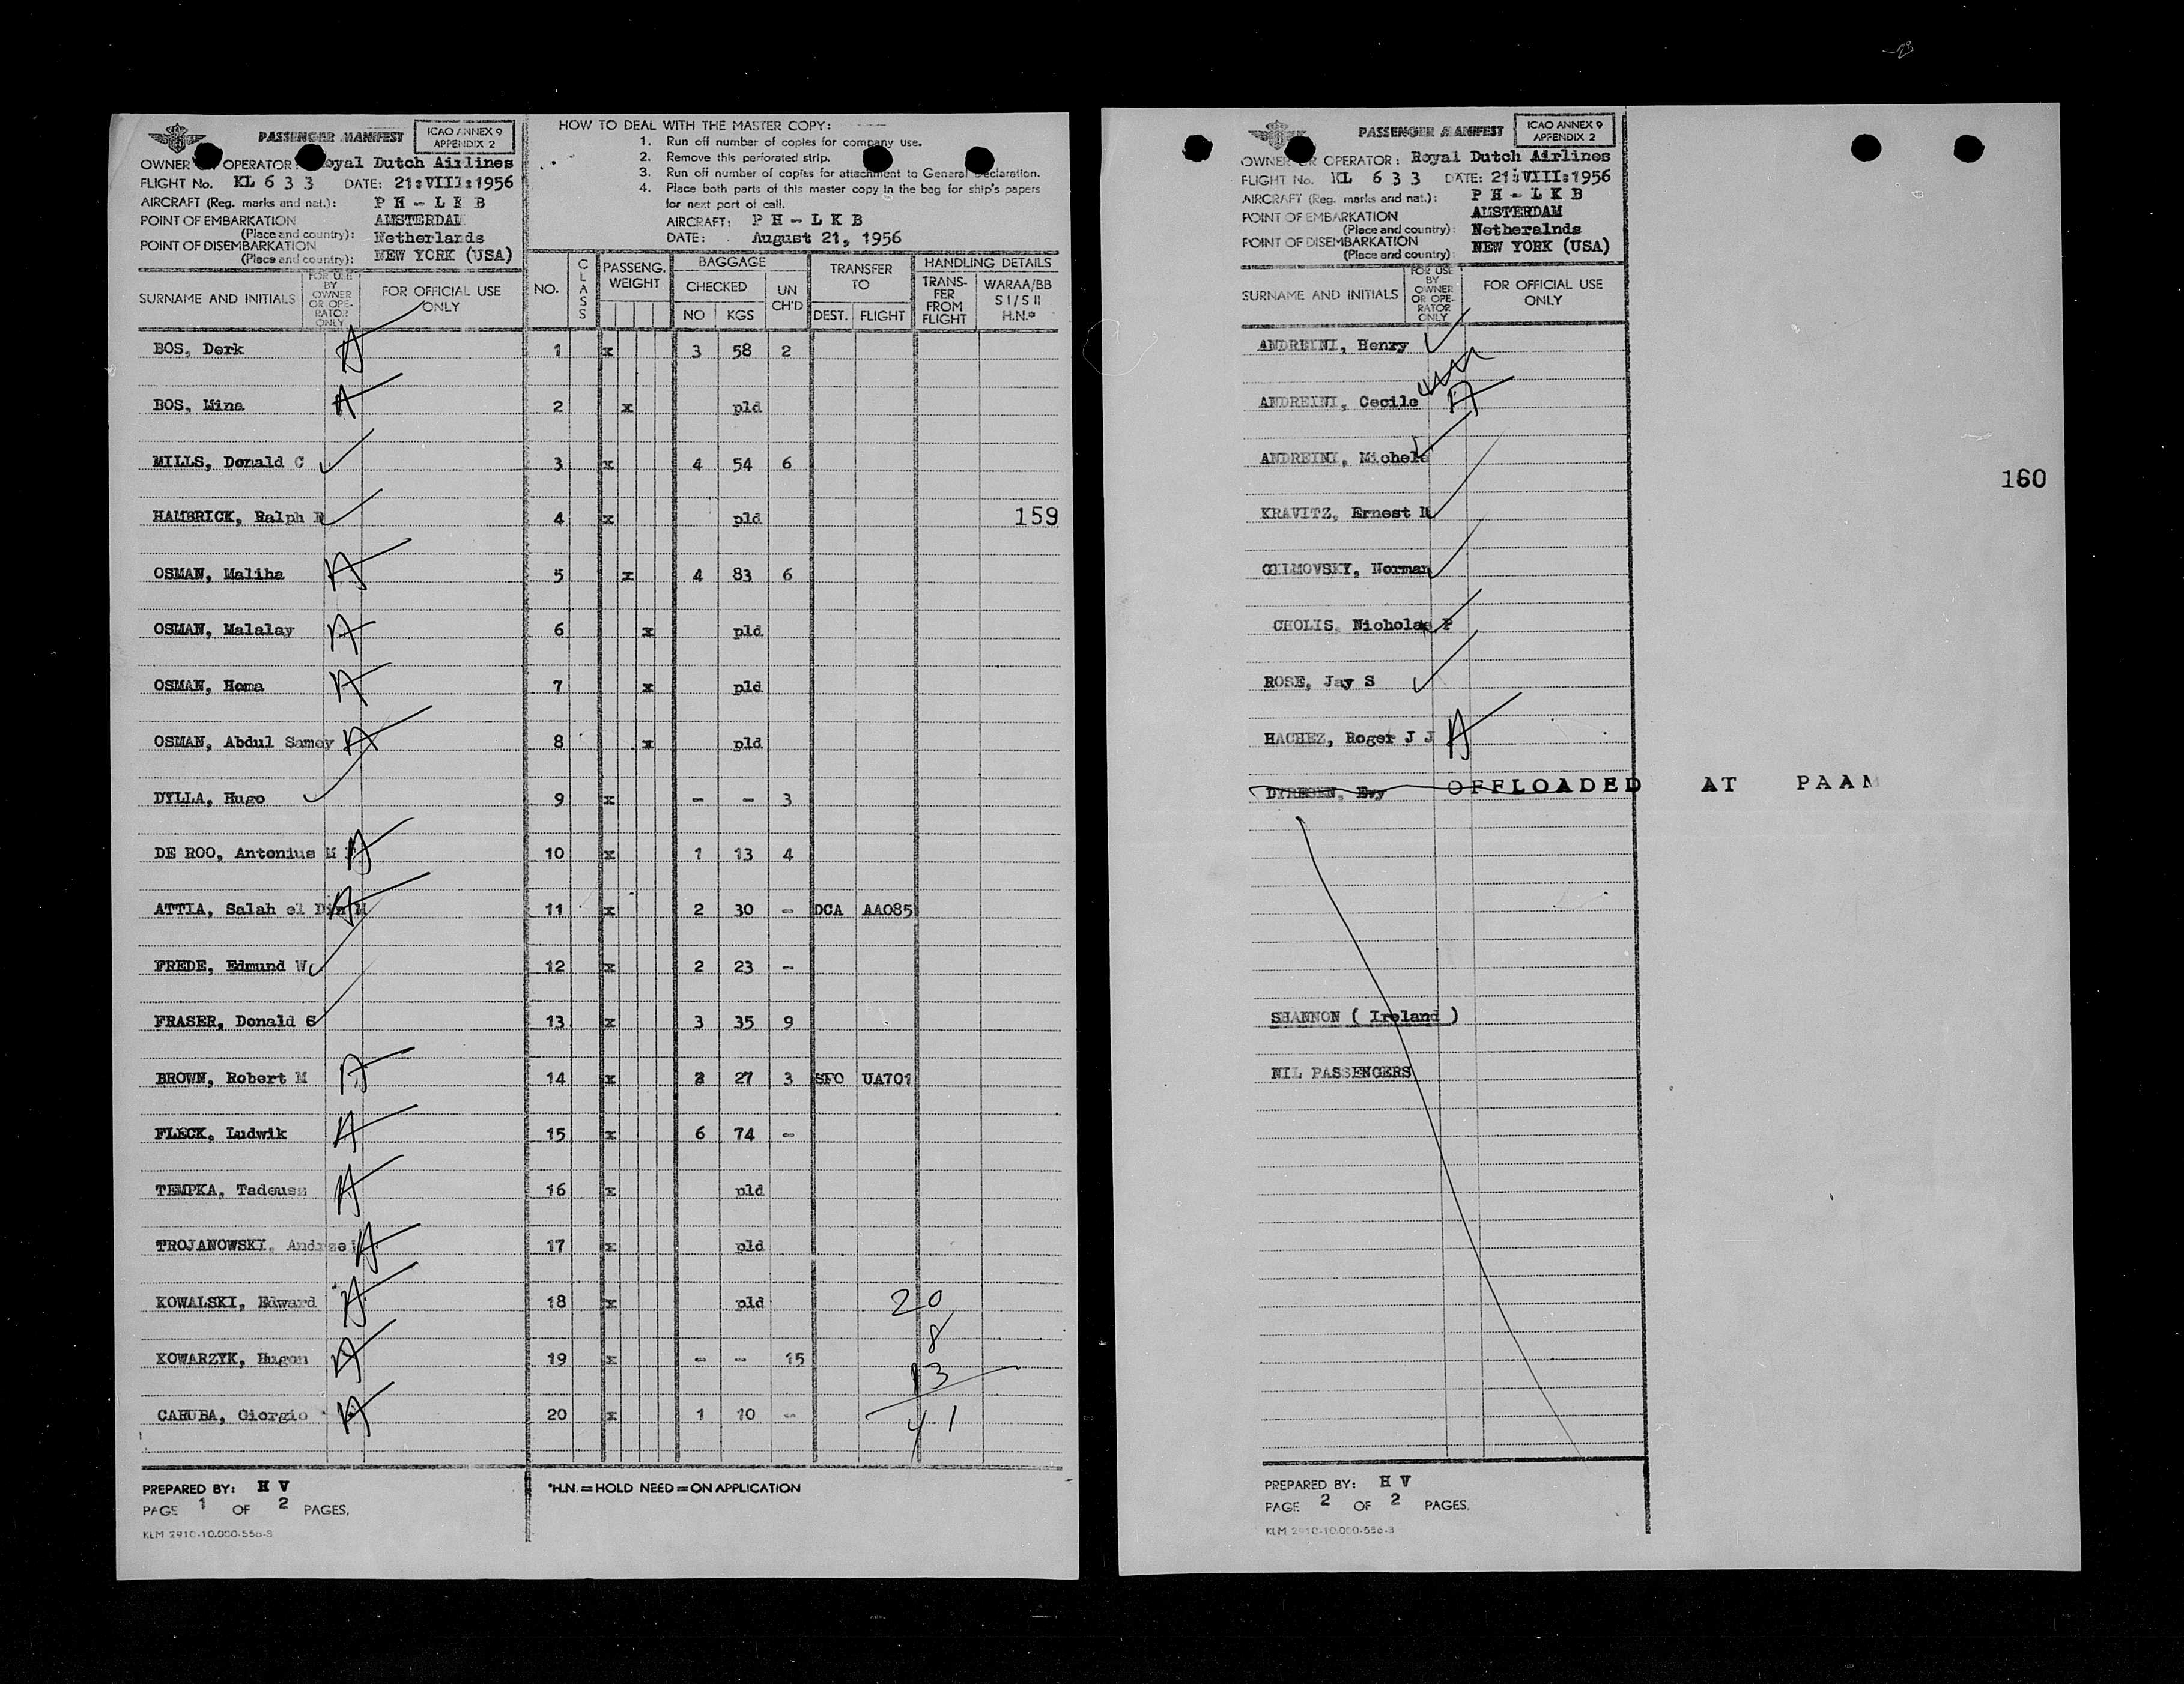 PASSENGER MANIFEST
ICAO ANNEX 9
APPENDIX 2
OWNER OPERATOR: Royal Dutch Airlines
FLIGHT No. KL 6 3 3 DATE: 21:VIII:1956
AIRCRAFT (Reg. marks and nat.): P H - L K B
POINT OF EMBARKATION AMSTERDAM
(Place and country): Netherlands
POINT OF DISEMBARKATION
(Place and country): NEW YORK (USA)
SURNAME AND INITIALS
FOR USE BY OWNER OR OPE- RATOR ONLY
FOR OFFICIAL USE ONLY
HOW TO DEAL WITH THE MASTER COPY:
1. Run off number of copies for company use.
2. Remove this perforated strip.
3. Run off number of copies for attachment to General Declaration.
4. Place both parts of this master copy in the bag for ship's papers
for next port of call.
AIRCRAFT: P H - L K B
DATE: August 21, 1956
NO. CLASS PASSENG. WEIGHT BAGGAGE CHECKED NO KGS UN CH'D TRANSFER TO DEST. FLIGHT HANDLING DETAILS TRANS- FER FROM FLIGHT WARAA/BB S I/S II H.N.*
BOS, Derk A 1 x 3 58 2
BOS, Mina A 2 x pld
MILLS, Donald C 3 x 4 54 6
HAMBRICK, Ralph R 4 x pld 159
OSMAN, Maliha A 5 x 4 83 6
OSMAN, Malalay A 6 x pld
OSMAN, Homa A 7 x pld
OSMAN, Abdul Samey A 8 x pld
DYLLA, Hugo 9 x - - 3
DE ROO, Antonius M A 10 x 1 13 4
ATTIA, Salah el Din M A 11 x 2 30 - DCA AA085
FREDE, Edmund W 12 x 2 23 -
FRASER, Donald S 13 x 3 35 9
BROWN, Robert M A 14 x 2 27 3 SFO UA701
FLECK, Ludwik A 15 x 6 74 -
TEMPKA, Tadeusz A 16 x pld
TROJANOWSKI, Andrzej A 17 x pld
KOWALSKI, Edward A 18 x pld 20
8
KOWARZYK, Hugon A 19 x - - 15
13
CARUBA, Giorgio A 20 x 1 10 - 41
PREPARED BY: H V
PAGE 1 OF 2 PAGES.
KLM 2910-10.000-556-S
*H.N. = HOLD NEED = ON APPLICATION
PASSENGER MANIFEST
ICAO ANNEX 9
APPENDIX 2
OWNER OR OPERATOR: Royal Dutch Airlines
FLIGHT No. KL 6 3 3 DATE: 21:VIII:1956
AIRCRAFT (Reg. marks and nat.): P H - L K B
POINT OF EMBARKATION AMSTERDAM
(Place and country): Netheralnds
POINT OF DISEMBARKATION
(Place and country): NEW YORK (USA)
SURNAME AND INITIALS
FOR USE BY OWNER OR OPE- RATOR ONLY
FOR OFFICIAL USE ONLY
ANDREINI, Henry
ANDREINI, Cecile A
ANDREINI, Michele
160
KRAVITZ, Ernest
Norman
CHOLIS, Nicholas P
ROSE, Jay S
HACHEZ, Roger J J A
Evy OFFLOADED AT PAAM
SHANNON ( Ireland )
NIL PASSENGERS
PREPARED BY: H V
PAGE 2 OF 2 PAGES.
KLM 2910-10.000-556-S